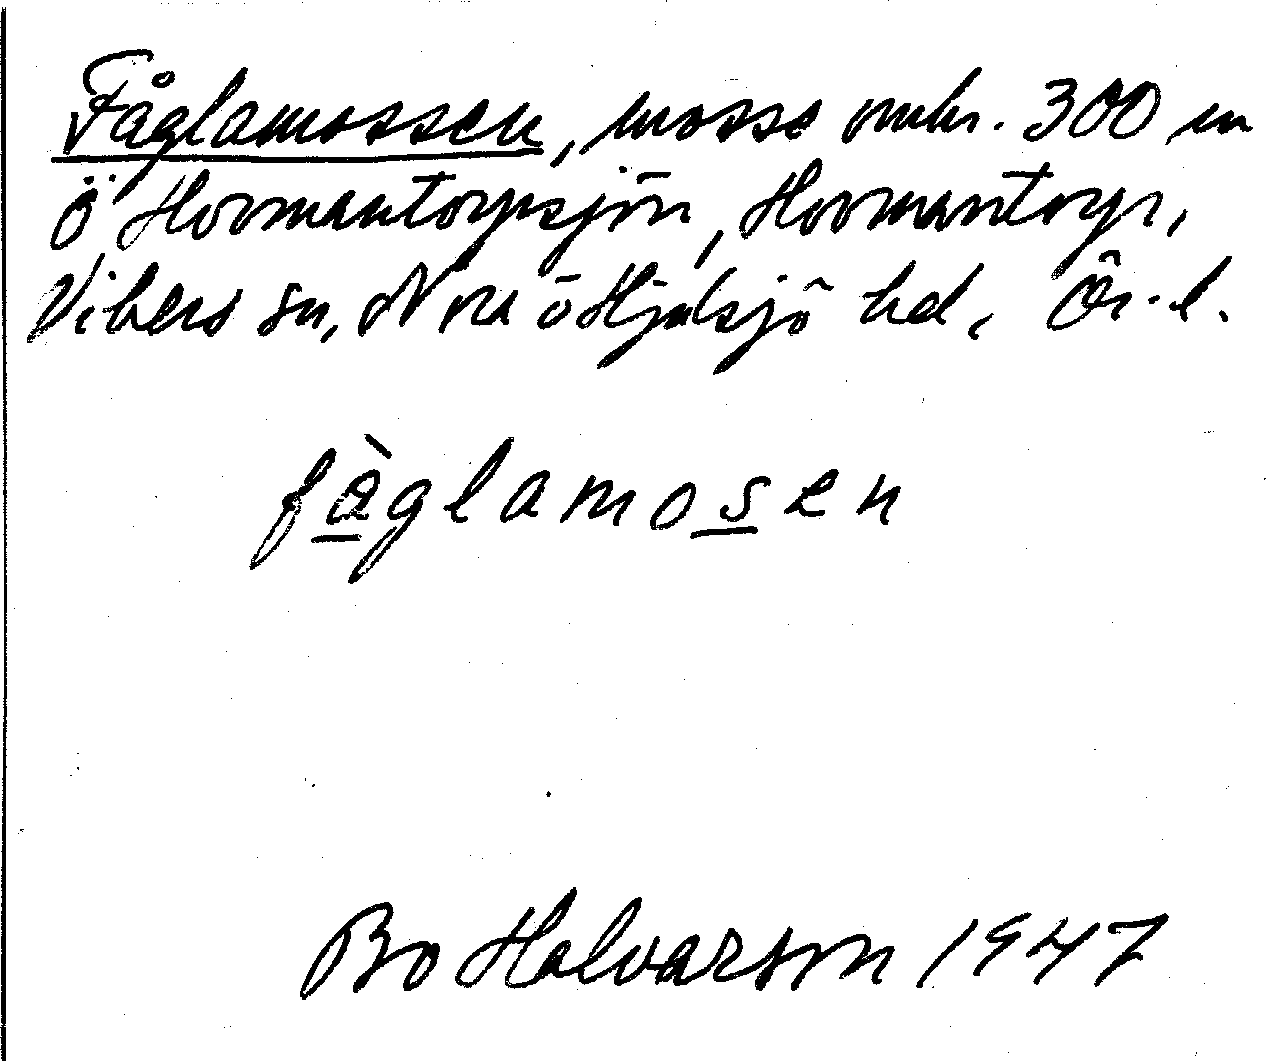 Fåglamossen, mosse omkr. 300 m
Ö Hovmantorpsjön, Hovmantorp,
Vikers sn, Nora o Hjulsjö hd, Ör. l.
fàglamosen
Bo Halvarson 1947